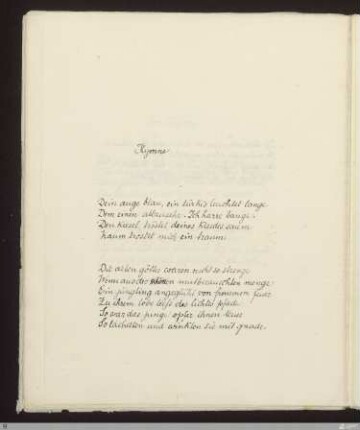 Hymne
Dein auge blau, ein türkis leuchtet lange
Dem einen allzusehr. Ich harre bange.
Den kiesel tröstet deines kleides saum
Kaum tröstet mich ein traum.
Die alten götter waren nicht so strenge
Wenn aus der schönen mutberauschten menge
Ein jüngling angeglüht von frommem feuer
Zu ihrem lobe liess des lichtes pfade
So war das junge opfer ihnen teuer
So lächelten und winkten sie mit gnade.